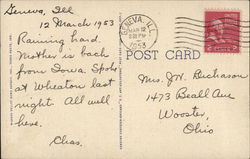 Geneva, Ill
12 March 1953
Raining hard.
Mother is back
from Iowa. Spoke
at Wheaton last
night. All well
here.
Chas.
GENEVA, ILL.
MAR 12
1953
POST CARD
Mrs. J.W.
1473 Beall Ave
Wooster,
Ohio